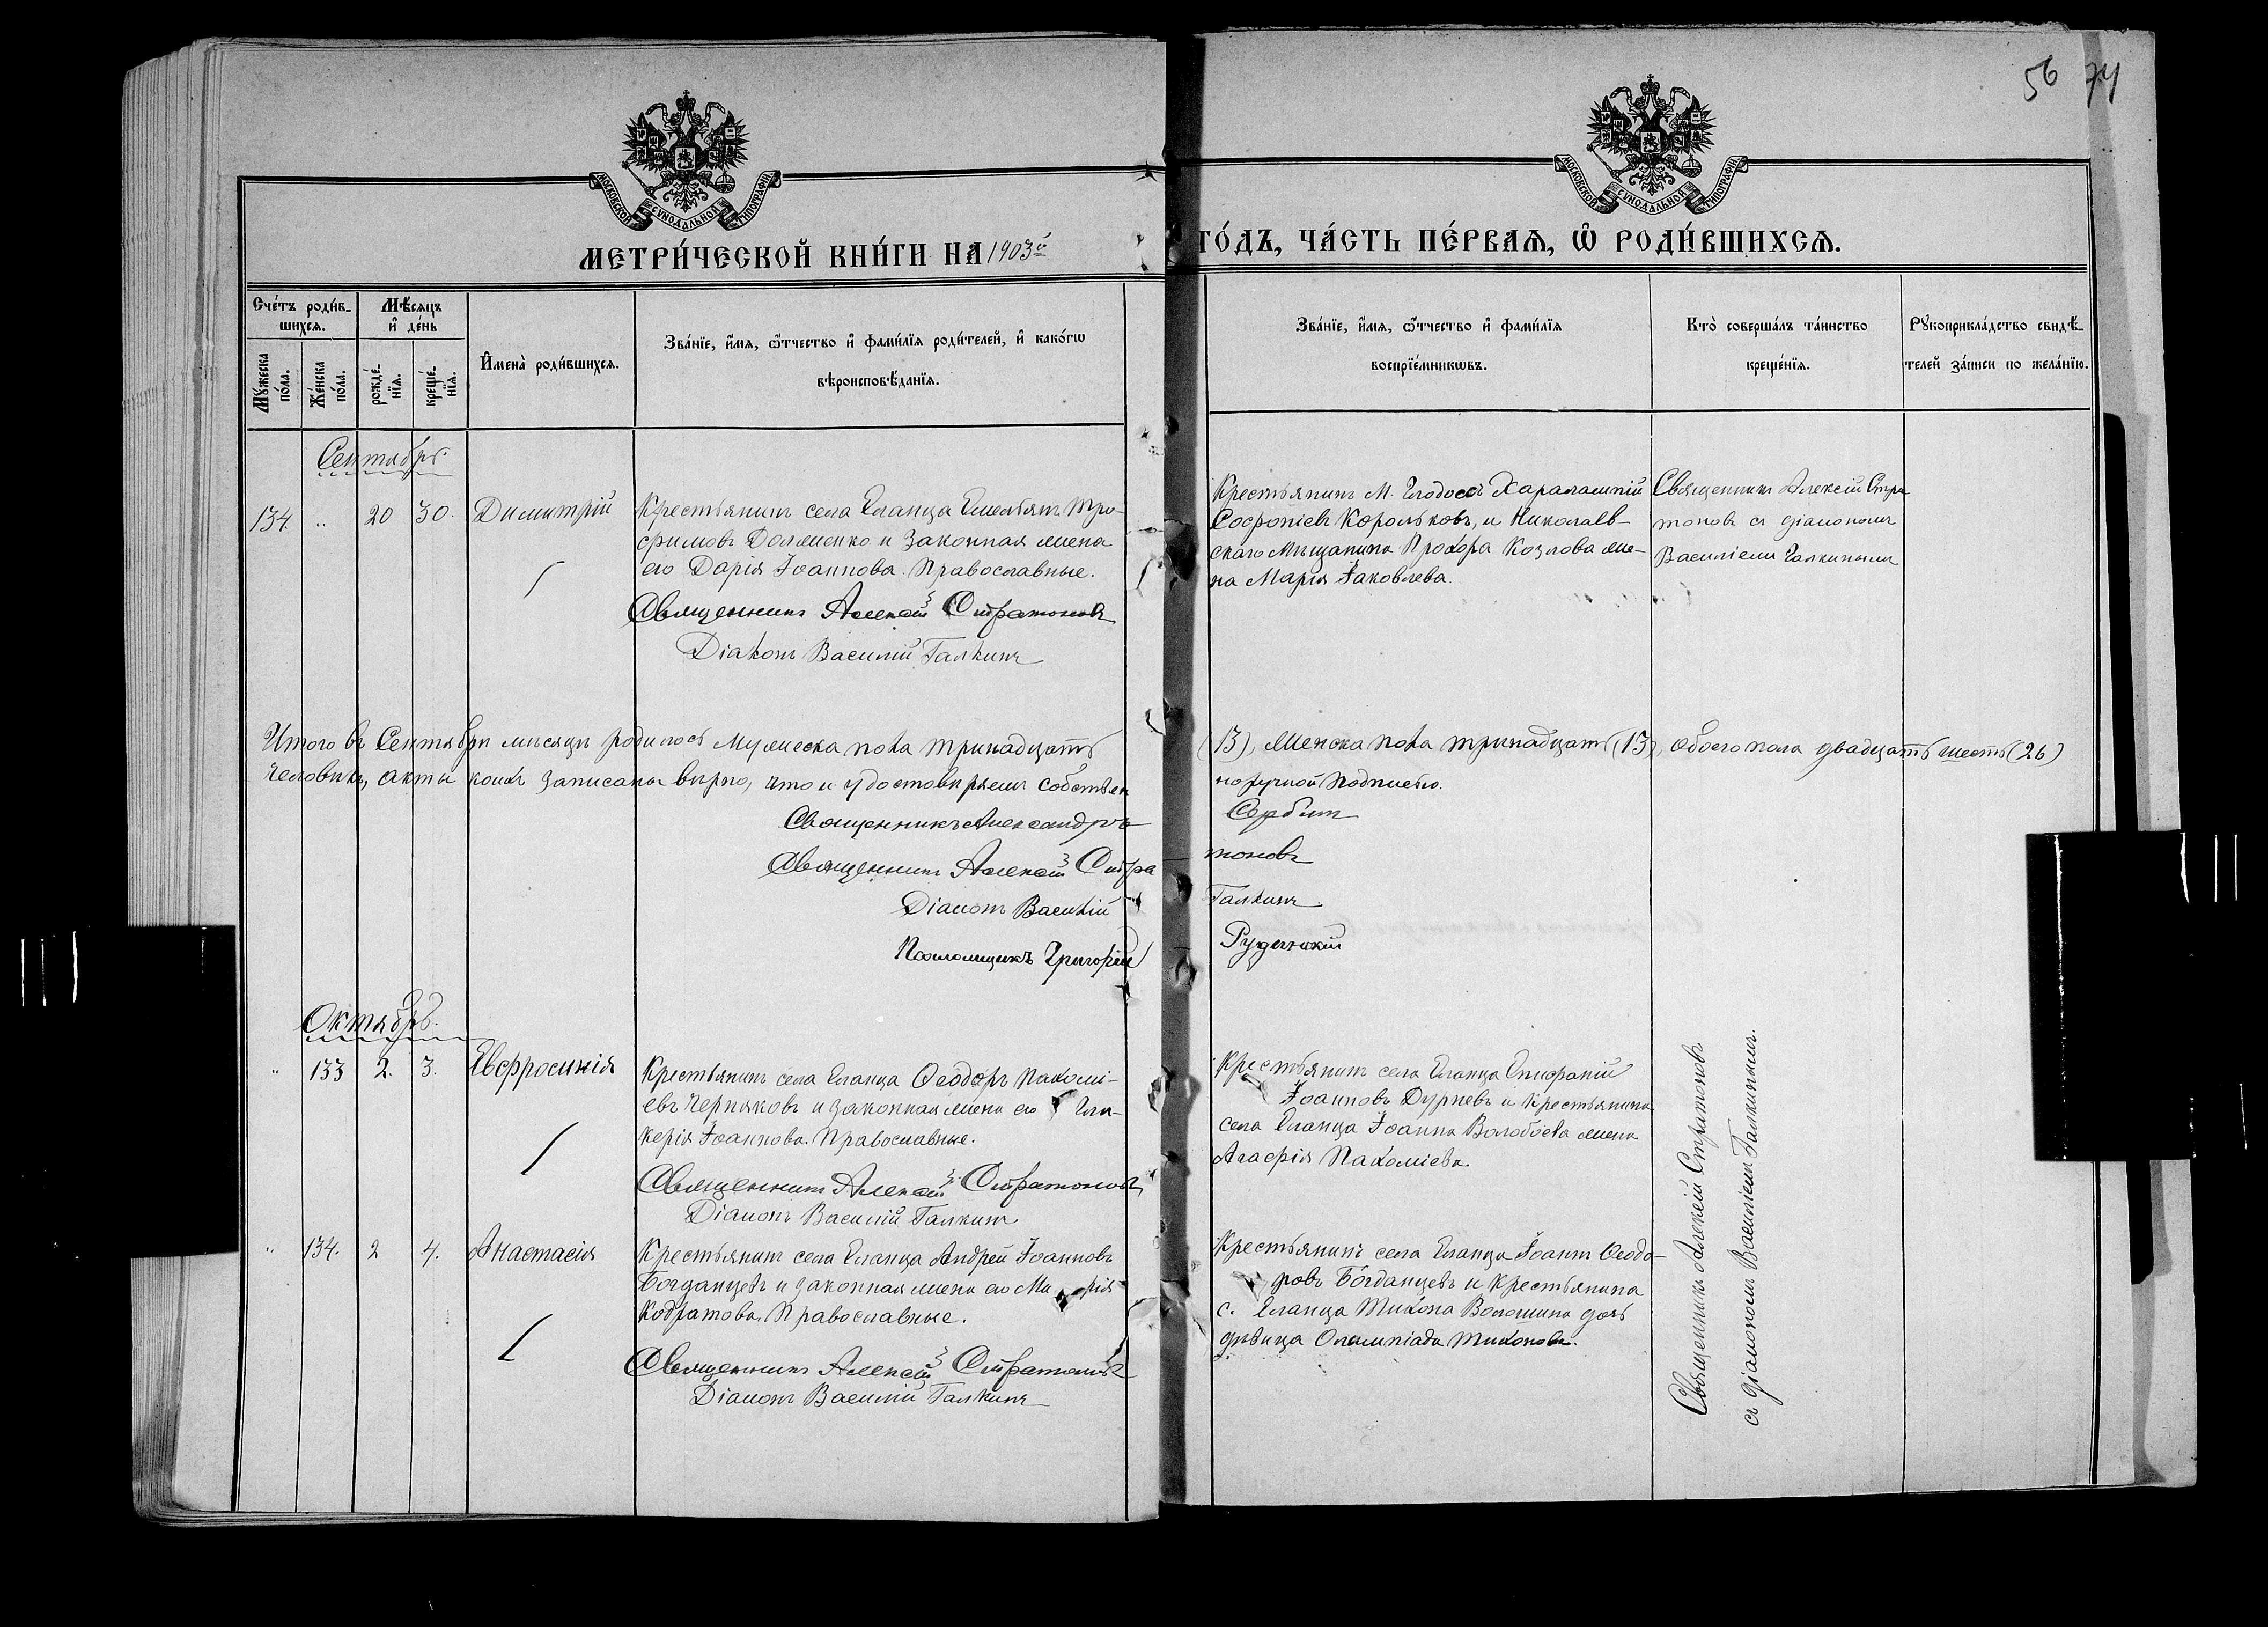 56 74
МОСКОВСКОЙ СУНОДАЛЬНОЙ ТИПОГРАФІИ
МОСКОВСКОЙ СУНОДАЛЬНОЙ ТИПОГРАФІИ
МЕТРИ́ЧЕСКОЙ КНИ́ГИ НА 1903й
ГО́ДЪ, ЧА́СТЬ ПЕ́РВАЯ, Ѡ҆ РОДИ́ВШИХСЯ.
Сче́тъ роди́в-
шихся.
Мѣ́сяцъ
и҆ де́нь
Мꙋ́жеска
по́ла.
Же́нска
по́ла.
рожде́-
нїя.
креще́-
нїя.
И҆мена̀ роди́вшихся.
Зва́нїе, и҆́мя, ѻ҆́тчество и҆ фами́лїя роди́телей, и҆ како́гѡ
вѣроисповѣ́данїя.
Зва́нїе, и҆́мя, ѻ҆́тчество и҆ фами́лїя
воспрїе́мникѡвъ.
Кто̀ соверша́лъ та́инство
креще́нїя.
Рꙋкоприкла́дство свидѣ́-
телей за́писи по жела́нїю.
Сентябрь.
134 „ 20 30. Димитрій
Крестьянинъ села Еланца Емельянъ Тро-
фимовъ Доляненко и законная жена
его Дарія Іоаннова. Православные.
Священникъ Алексій Стратоновъ
Діаконъ Василій Галкинъ
Крестьянинъ М. Глодоссъ Харалампій
Софроніевъ Корольковъ, и Николаев-
скаго Мѣщанина Прохора Козлова же-
на Марія Іаковлева.
Священникъ Алексій Стра-
тоновъ съ діакономъ
Василіемъ Галкинымъ
Итого въ Сентябрѣ мѣсяцѣ родилось мужеска пола тринадцать (13), женска пола тринадцать (13), обоего пола двадцать шесть (26)
человѣкъ, акты коихъ записаны вѣрно, что и удостовѣряемъ собствен норучной подписью.
Священникъ Александръ Сербин
Священникъ Алексій Стра тоновъ
Діаконъ Василій Галкинъ
Псаломщикъ Григорій
Октябрь.
„ 133 2. 3. Евфросинія
Крестьянинъ села Еланца Ѳеодоръ Пахомі-
евъ Черняковъ и законная жена его Гли-
керія Іоаннова. Православные.
Священникъ Алексій Стратоновъ
Діаконъ Василій Галкинъ
Крестьянинъ села Еланца
Іоанновъ Дурневъ и крестьянина
села Еланца Іоанна Волобоева жена
Агафія Пахоміева
„ 134. 2 4. Анастасія
Крестьянинъ села Еланца Андрей Іоанновъ
Богданцевъ и законная жена его Ма рія
Кодратова. Православные.
Священникъ Алексій Стратоновъ
Діаконъ Василій Галкинъ
Крестьянинъ села Еланца Іоаннъ Ѳеодо-
ровъ Богданцевъ и крестьянина
с. Еланца Тихона Волошина дочь
дѣвица Олимпіада Тихонова.
Священникъ Алексій Стратоновъ
съ діакономъ Василіемъ Галкинымъ.